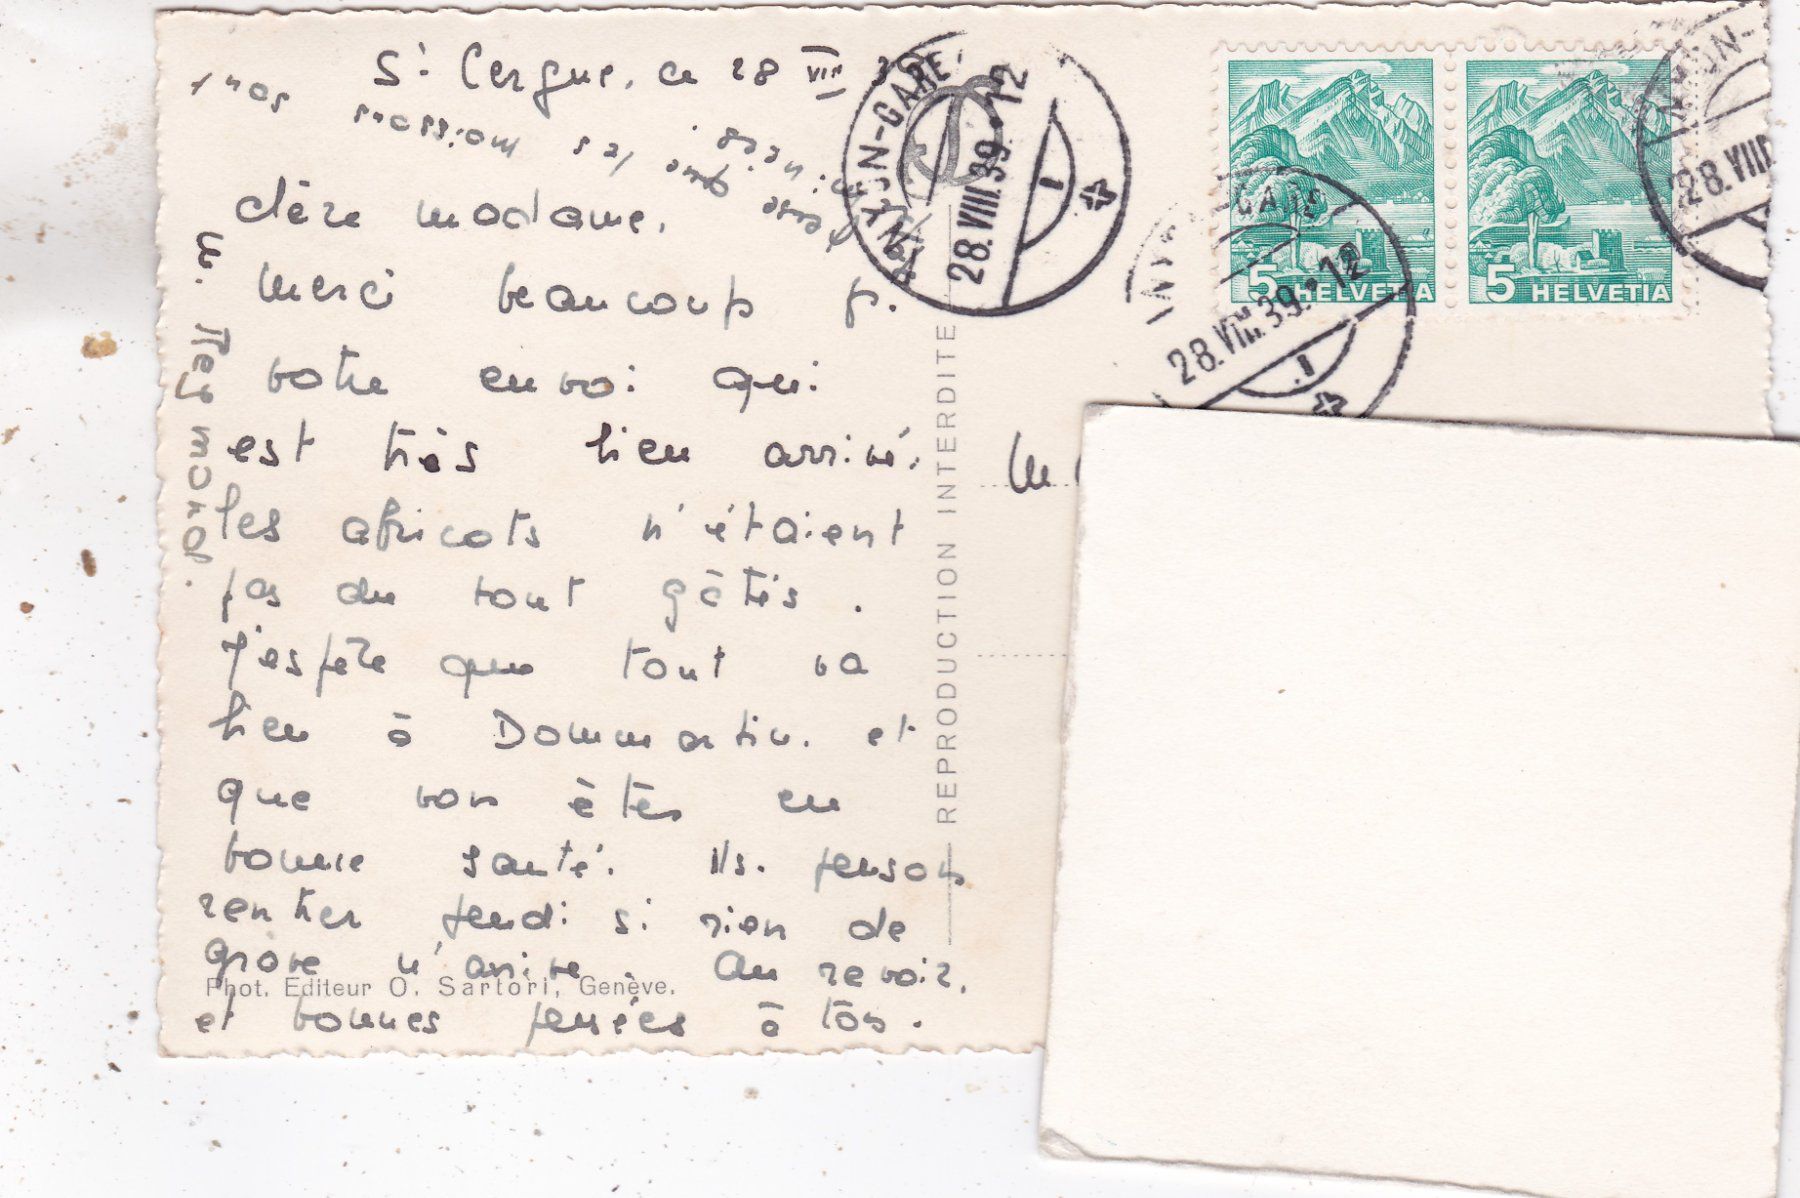 St. Cergue, ce 28 VIII 39
chère madame,
merci beaucoup p.
votre envoi qui
est très bien arrivé.
les abricots n'étaient
pas du tout gâtés.
J'espère que tout va
bien à Dommartin. et
que vous êtes en
bonne santé. Ns. pensons
rentrer jeudi si rien de
grave n'arrive. Au revoir.
et bonnes pensées à tous.
M. Reymond.
Phot. Editeur O. Sartori, Genève.
REPRODUCTION INTERDITE
NYON-GARE
28.VIII.39.-12
1
5 HELVETIA
5 HELVETIA
NYON-GARE
28.VIII.39.-12
1
NYON-
28.VIII.
M